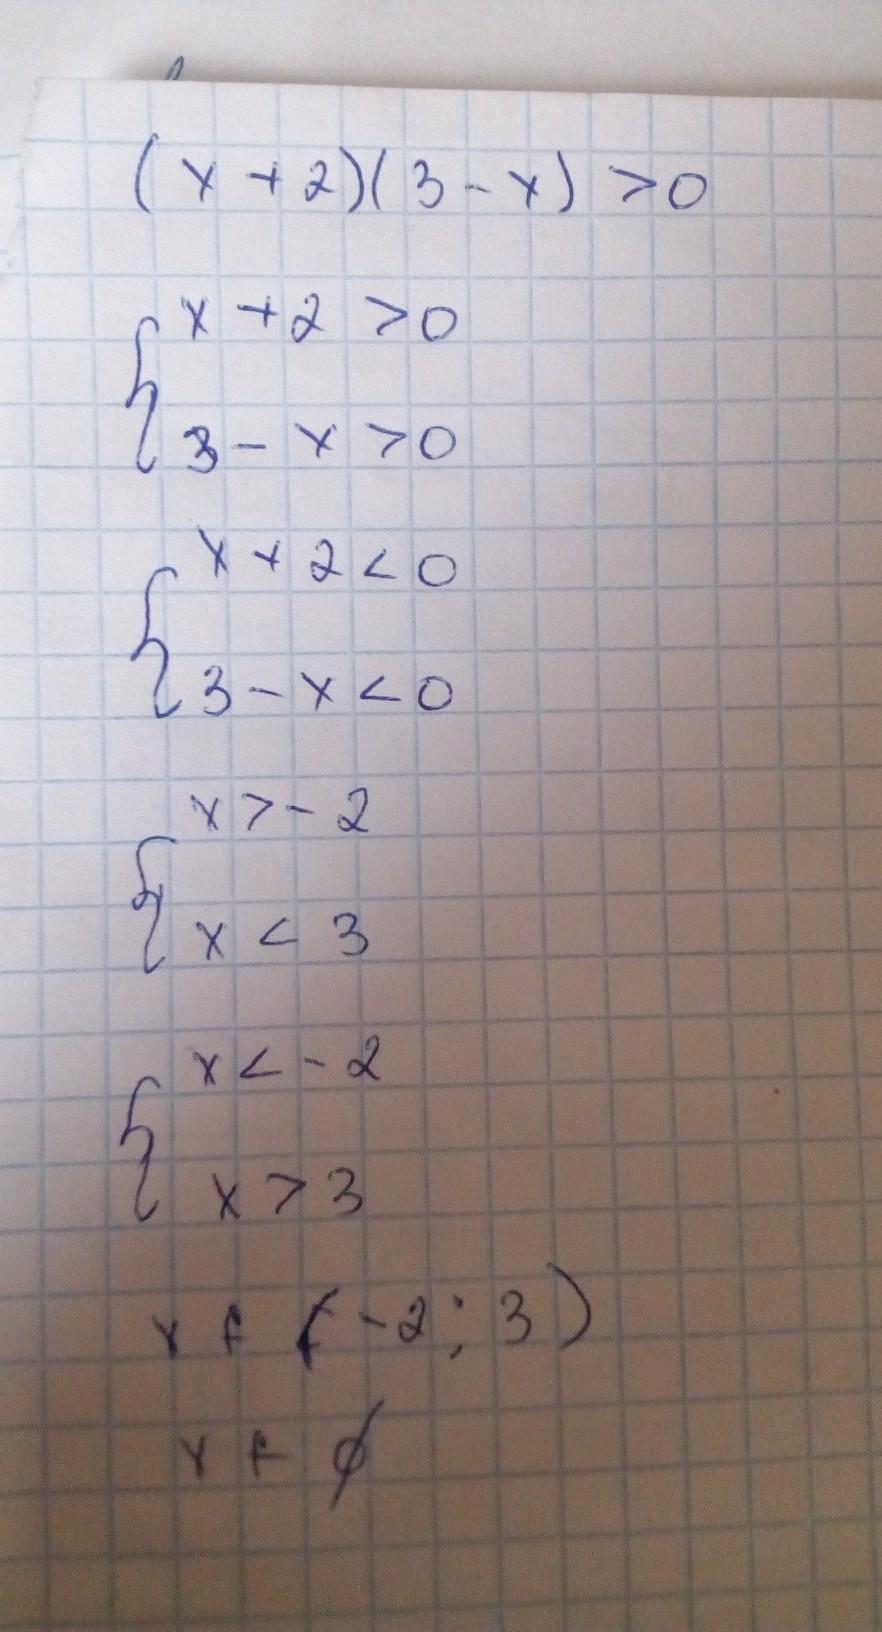 (x + 2)(3 - x) > 0
{ x + 2 > 0
3 - x > 0
{ x + 2 < 0
3 - x < 0
{ x > - 2
x < 3
{ x < - 2
x > 3
x ∈ (-2; 3)
x ∈ ∅